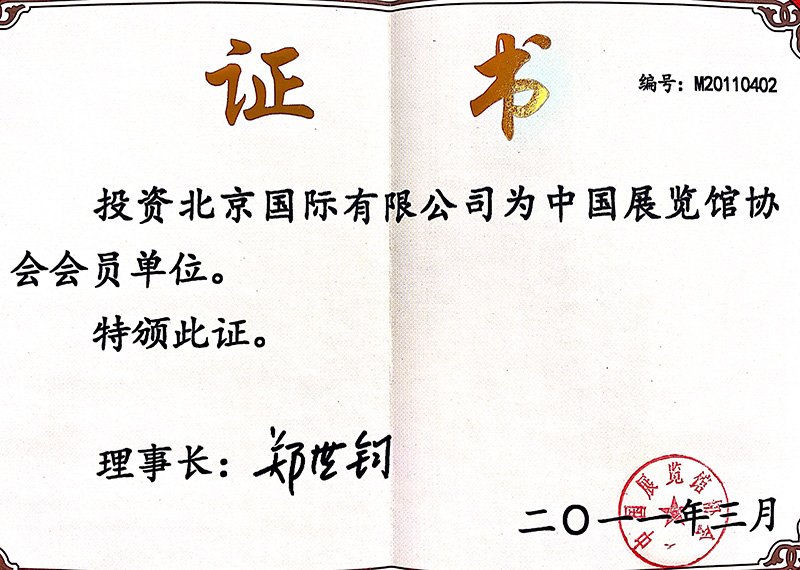 证书
编号：M20110402
投资北京国际有限公司为中国展览馆协
会会员单位。
特颁此证。
理事长：郑世钧
二〇一一年三月
中国展览馆协会